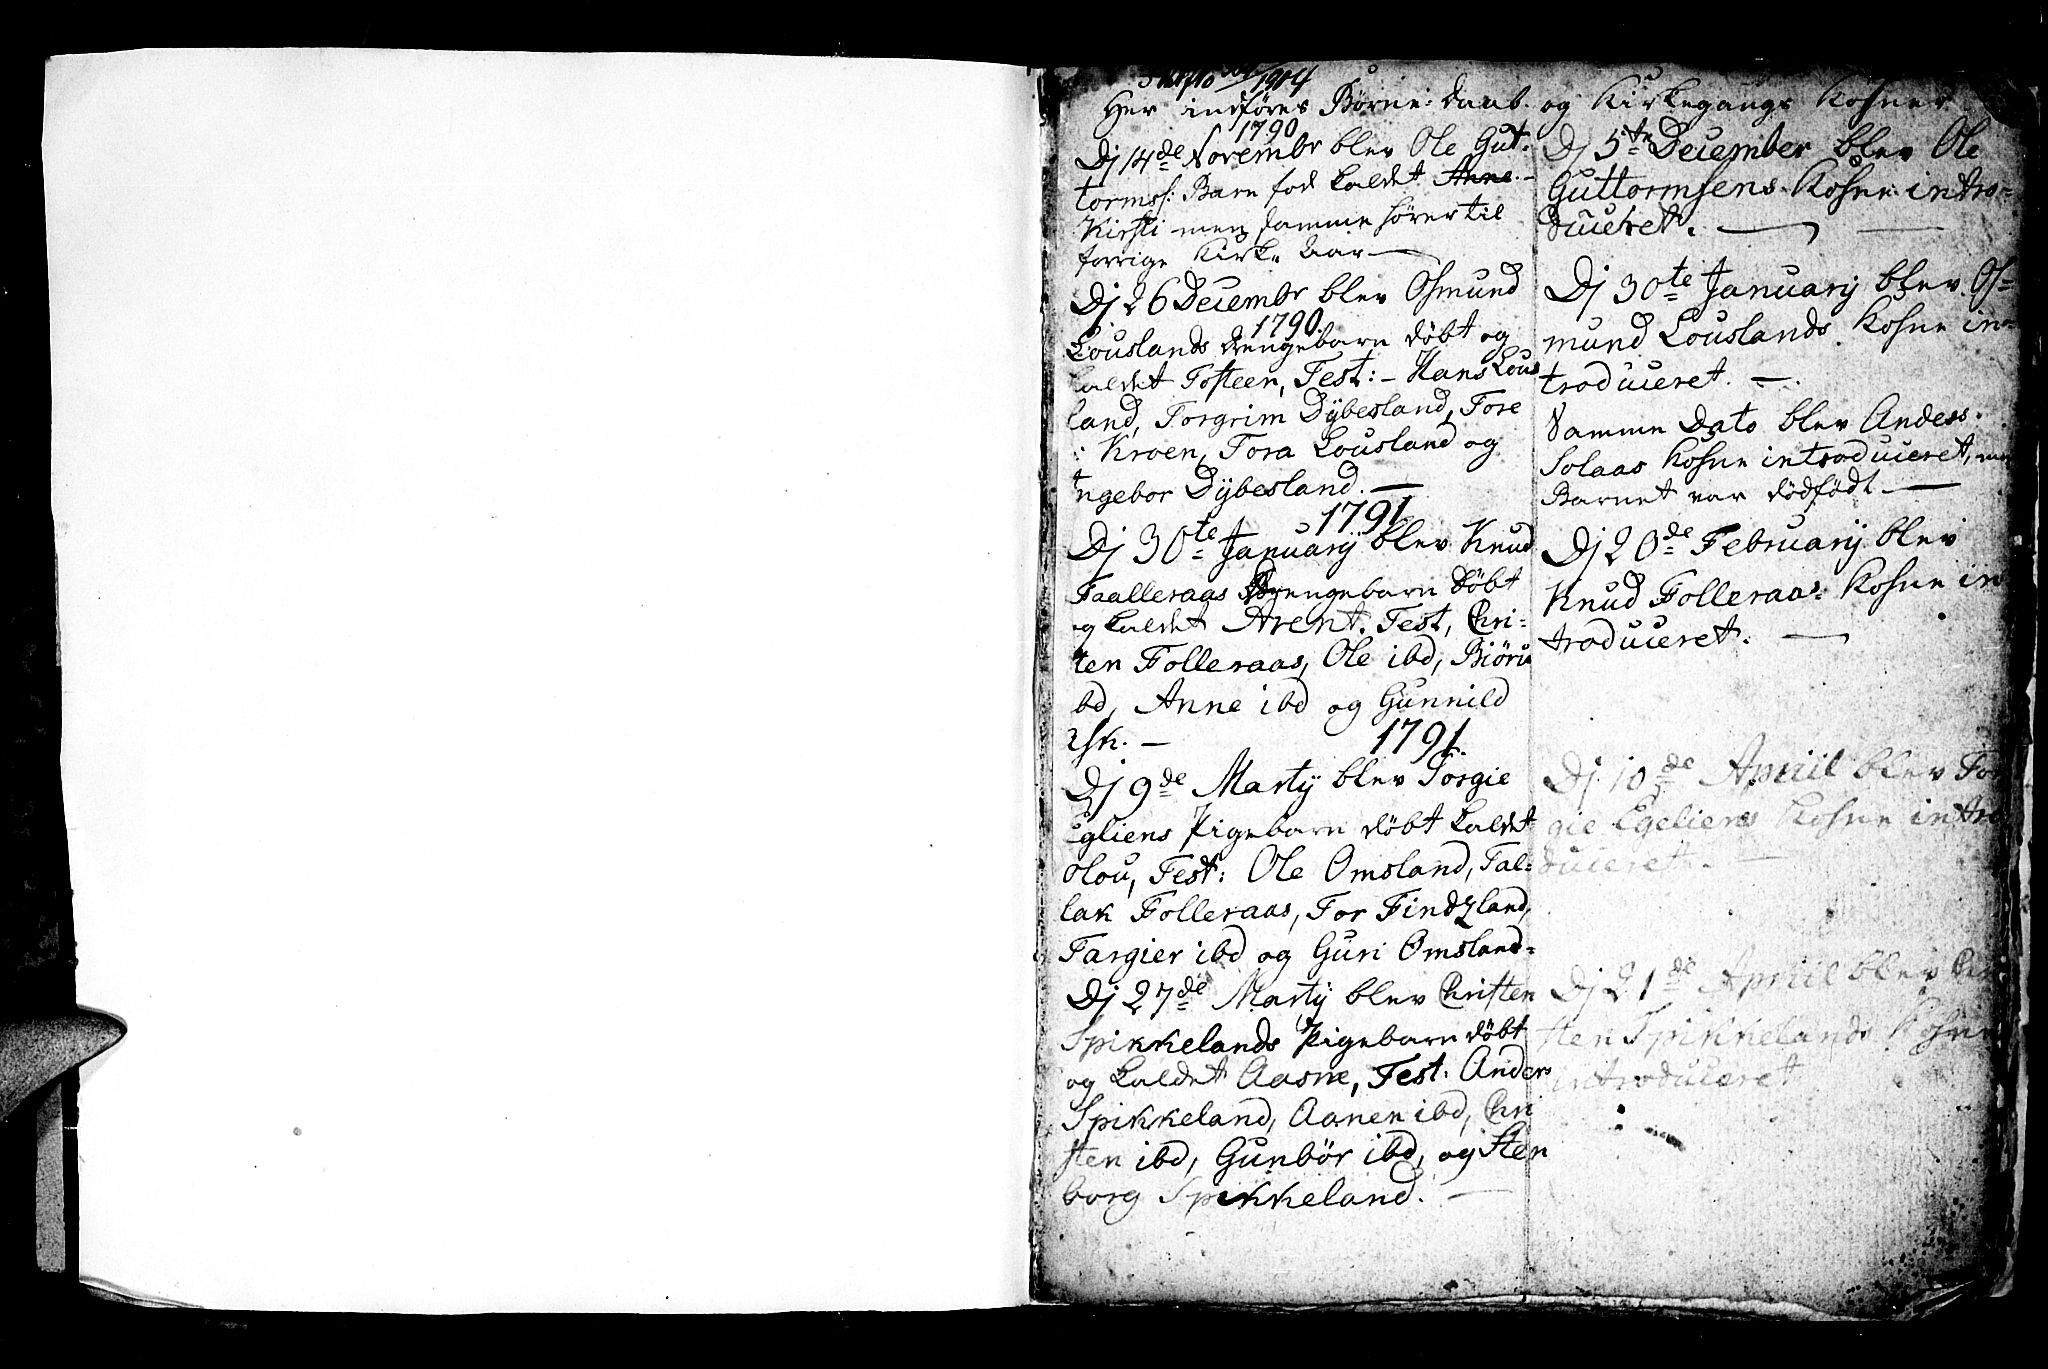 1904
Her indføres Børne: daab. og Kirkegangs Kohner
1790
Dj 14de Novembr blev Ole Gut:
torms: Barn fød kaldet Anne
Kirsti men samme hører til
forrige Kirke Aar
Dj 26 Decembr blev Osmund
1790.
Louslands drengebarn døbt og
kaldet Tosteen, Test: - Hans Lous
land, Torgrim Dÿbesland, Tore
i Kroen, Tora Lousland og
ngebor Dÿbesland.
1791
Dj 30te Januarÿ blev Knud
Faalleraas Drengebarn Døbt
og kaldet Arent. Test, Chri:
sten Folleraas, Ole ibd, Biörn
bd, Anne ibd og Gunnild
1791.
Dj 9de Martÿ blev Torgie
Egliens Pigebarn døbt kaldet
olou, Test: Ole Omsland, Tal:
lak Folleraas, Tor Findzland,
Targier ibd og Guri Omsland=
Dj 27de Martÿ blev Christen
Spikkelands Pigebarn døbt
og kaldet Aasne, Test: Anders
Spikkeland, Aanen ibd, Chri
sten ibd, Gunbör ibd, og Sten
borg Spikkeland.
Dj 5te December blev Ole
Guttormsens Kohne intro=
duceret.
Dj 30te Januarÿ blev Os=
mund Louslands Kohne in=
troduceret.
Samme Dato blev Andess:
Solaas Kohne introduceret, men
Barnet var dödfödt
Dj 20de Februarÿ blev
Knud Folleraas: Kohne in
troduceret.
Dj 10de Apriil blev Tor
gie Egeliens Kohne intro
duceret.
Dj 21de Apriil blev Chri
sten Spikkelands Kohne
introduceret